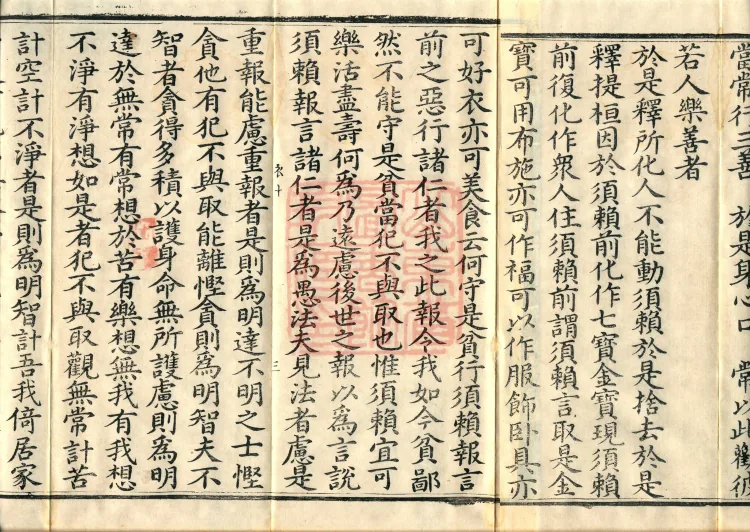 當常行三善　於是身心口　常以此勸彼
若人樂善者
於是釋所化人不能動須賴於是捨去於是
釋提桓因於須賴前化作七寶金寶現須賴
前復化作眾人住須賴前謂須賴言取是金
寶可用布施亦可作福可以作服飾卧具亦
可好衣亦可美食云何守是貧行須賴報言
前之惡行諸仁者我之此報今我如今貧鄙
然不能守是貧當犯不與取也惟須賴宜可
樂活盡壽何為乃遠慮後世之報以為言說
須賴報言諸仁者是為愚法夫見法者慮是
衣十
三
重報能慮重報者是則為明達不明之士慳
貪他有犯不與取能離慳貪則為明智夫不
智者貪得多積以護身命無所護慮則為明
達於無常有常想於苦有樂想無我有我想
不淨有淨想如是者犯不與取觀無常計苦
計空計不淨者是則為明智計吾我倚居家